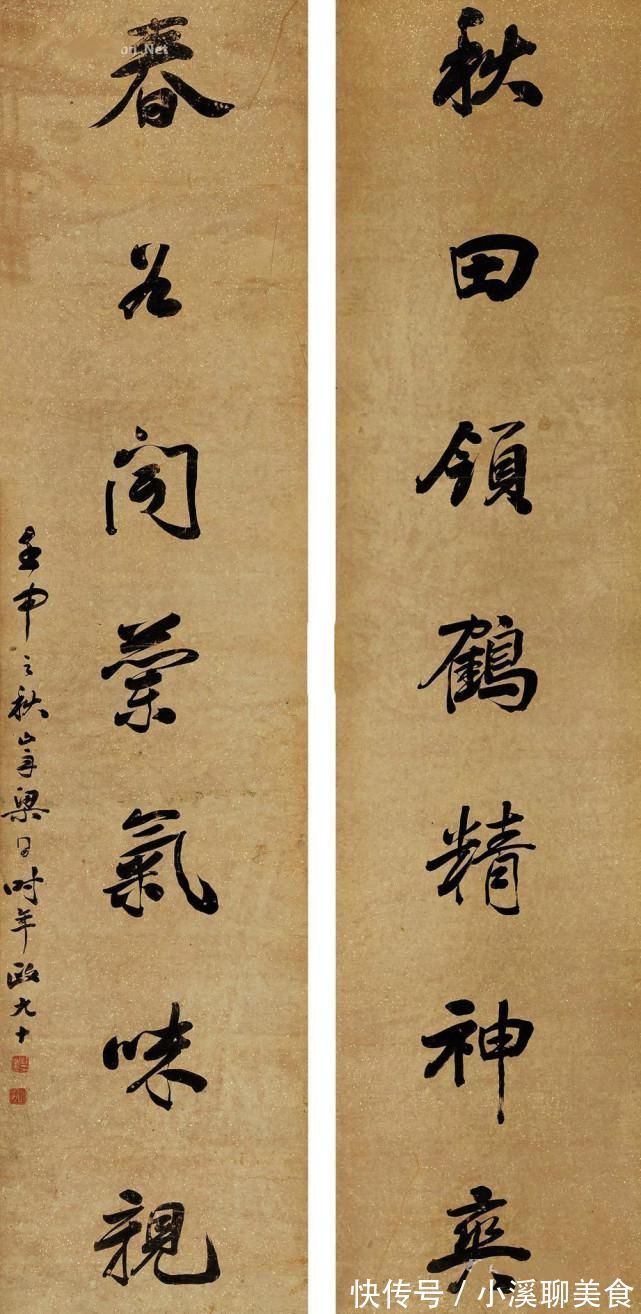 秋田領鶴精神爽
春谷聞蘭氣味親
壬申之秋山舟梁同書時年政九十
快传号 / 小溪聊美食